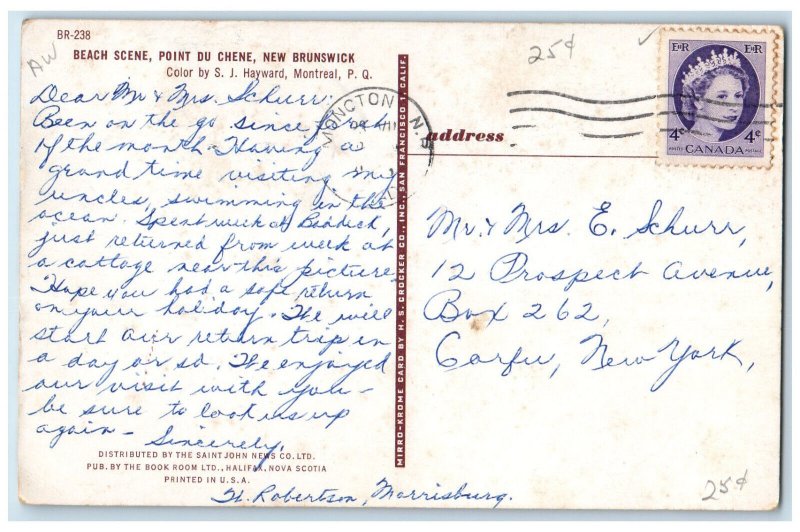 BR-238
BEACH SCENE, POINT DU CHENE, NEW BRUNSWICK
Color by S. J. Hayward, Montreal, P. Q.
AW
Dear Mr & Mrs. Schurr:
Been on the go since first
of the month. Having a
grand time visiting my
uncles, swimming in the
ocean. Spent week at Baddeck,
just returned from week at
a cottage near this picture.
Hope you had a safe return
on your holiday. We will
start our return trip in
a day or so. We enjoyed
our visit with you –
be sure to look us up
again – Sincerely,
H. Robertson, Morrisburg.
DISTRIBUTED BY THE SAINT JOHN NEWS CO. LTD.
PUB. BY THE BOOK ROOM LTD., HALIFAX, NOVA SCOTIA
PRINTED IN U.S.A.
MIRRO-KROME CARD BY H. S. CROCKER CO., INC., SAN FRANCISCO 1, CALIF.
MONCTON N.B
25¢
address
EIIR EIIR
4¢ 4¢
POSTES POSTAGE
CANADA
Mr. & Mrs. E. Schurr,
12 Prospect Avenue,
Box 262,
Corfu, New York,
25¢